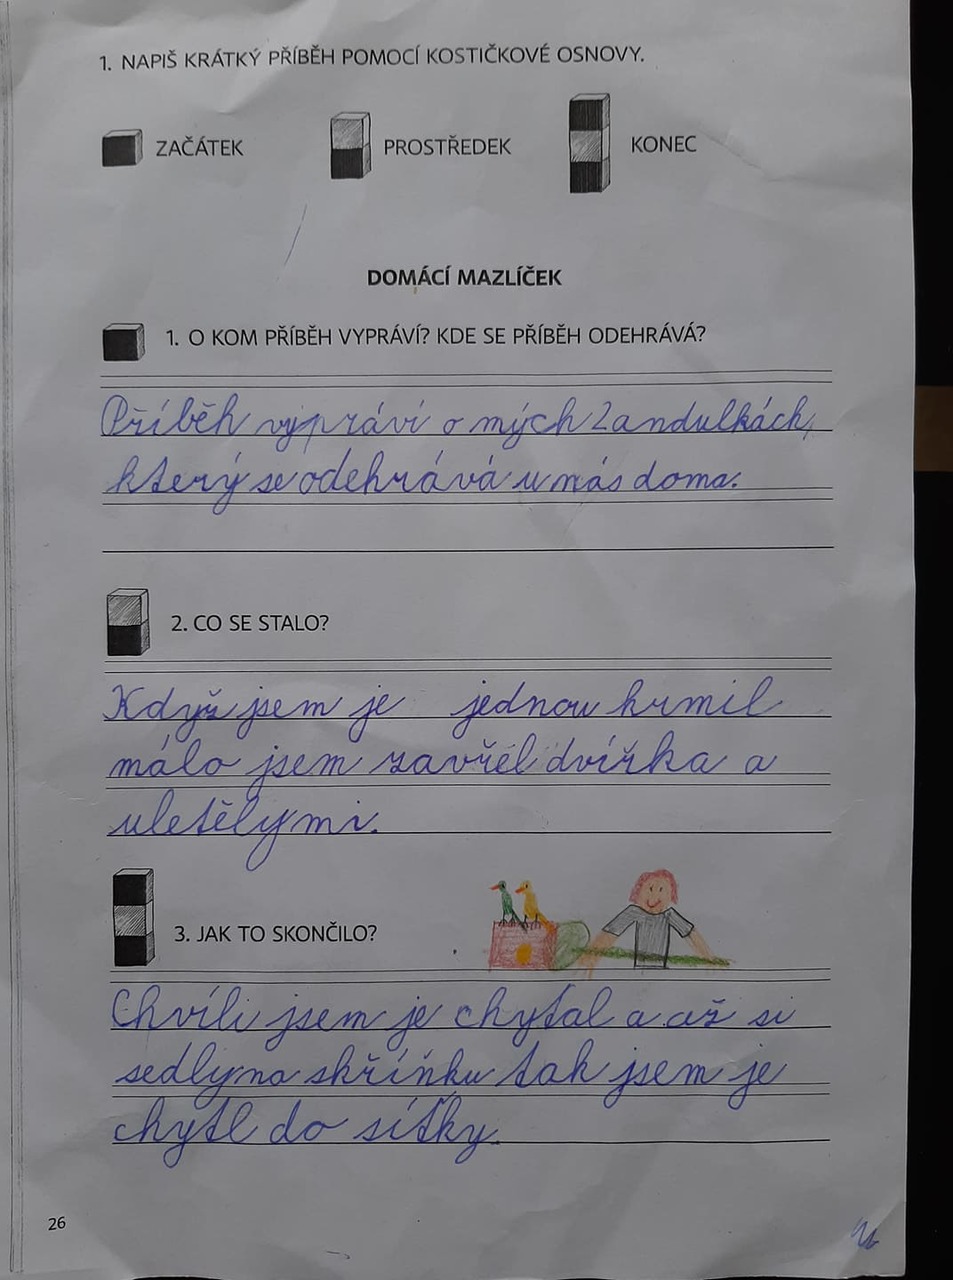 1. NAPIŠ KRÁTKÝ PŘÍBĚH POMOCÍ KOSTIČKOVÉ OSNOVY.
ZAČÁTEK PROSTŘEDEK KONEC
DOMÁCÍ MAZLÍČEK
1. O KOM PŘÍBĚH VYPRÁVÍ? KDE SE PŘÍBĚH ODEHRÁVÁ?
Příběh vypráví o mých 2 andulkách,
který se odehrává u nás doma.
2. CO SE STALO?
Když jsem je jednou krmil
málo jsem zavřel dvířka a
uletěly mi.
3. JAK TO SKONČILO?
Chvíli jsem je chytal a až si
sedly na skříňku tak jsem je
chytl do síťky.
26